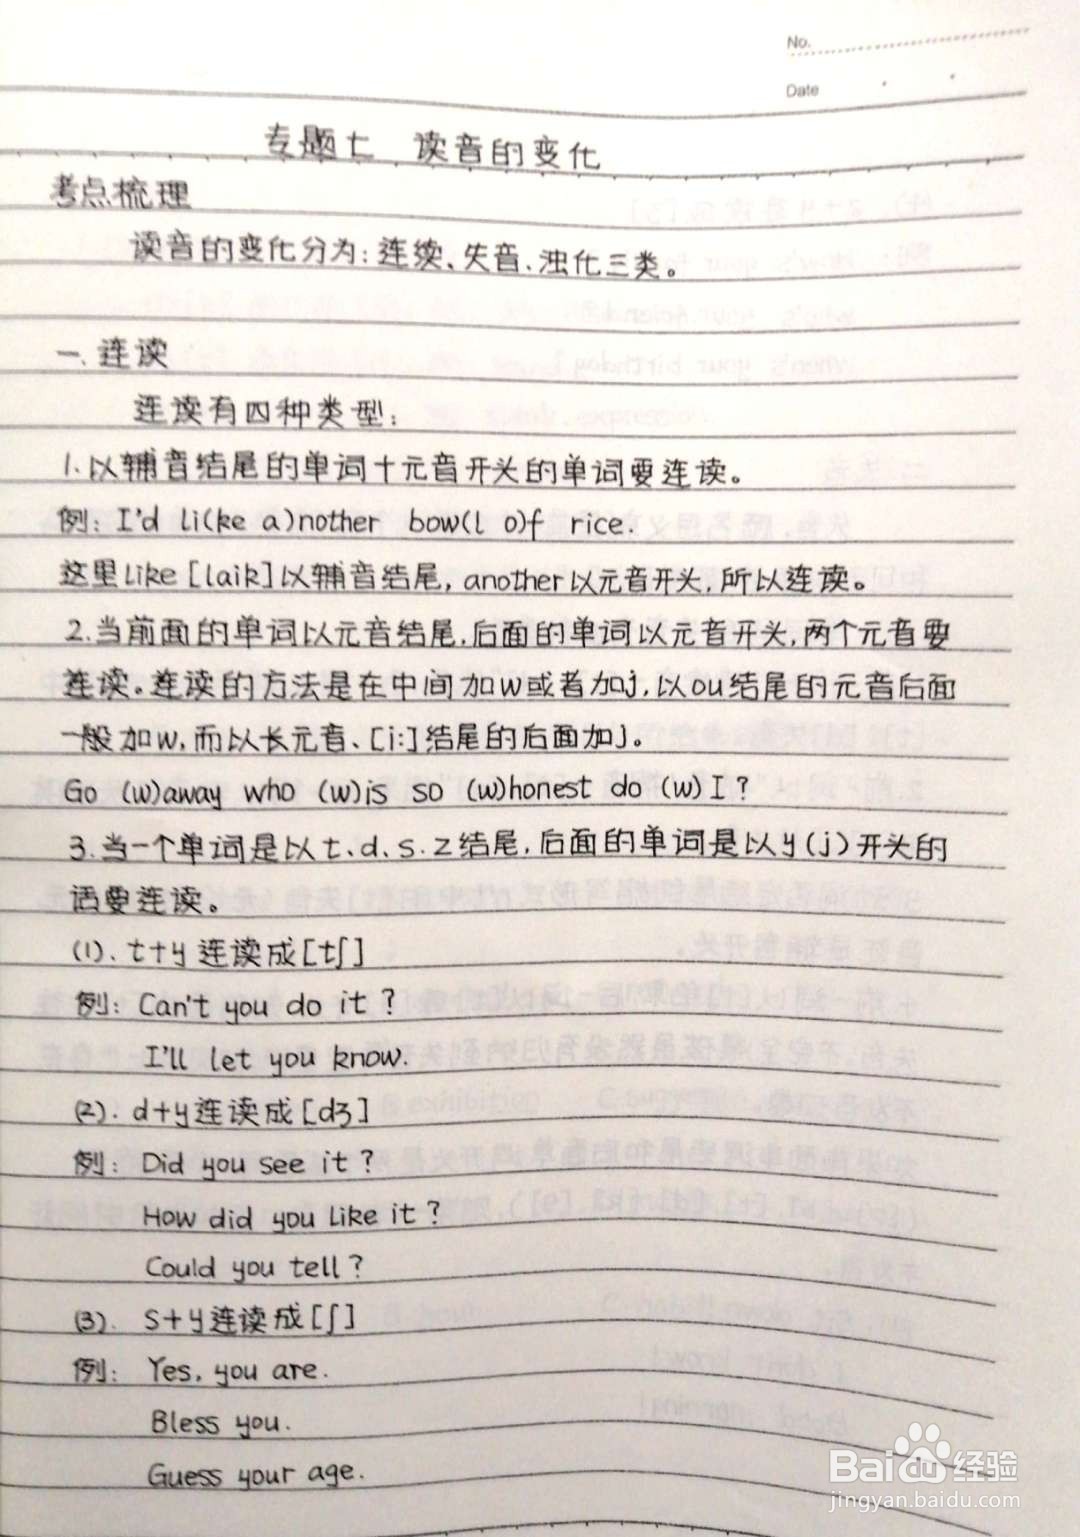 No.
Date
专题七 读音的变化
考点梳理
读音的变化分为:连续、失音、浊化三类。
一.连读
连读有四种类型:
1.以辅音结尾的单词+元音开头的单词要连读。
例: I'd li(ke a)nother bow(l o)f rice.
这里like [laik]以辅音结尾, another以元音开头,所以连读。
2.当前面的单词以元音结尾,后面的单词以元音开头,两个元音要
连读。连读的方法是在中间加w或者加j,以ou结尾的元音后面
一般加w,而以长元音、[i:]结尾的后面加j。
Go (w)away who (w)is so (w)honest do (w)I?
3.当一个单词是以t、d、s、z结尾,后面的单词是以y(j)开头的
话要连读。
(1). t+y连读成[tʃ]
例: Can't you do it?
I'll let you know.
(2). d+y连读成[dʒ]
例: Did you see it?
How did you like it?
Could you tell?
(3). s+y连读成[ʃ]
例: Yes, you are.
Bless you.
Guess your age.
Baidu经验
jingyan.baidu.com